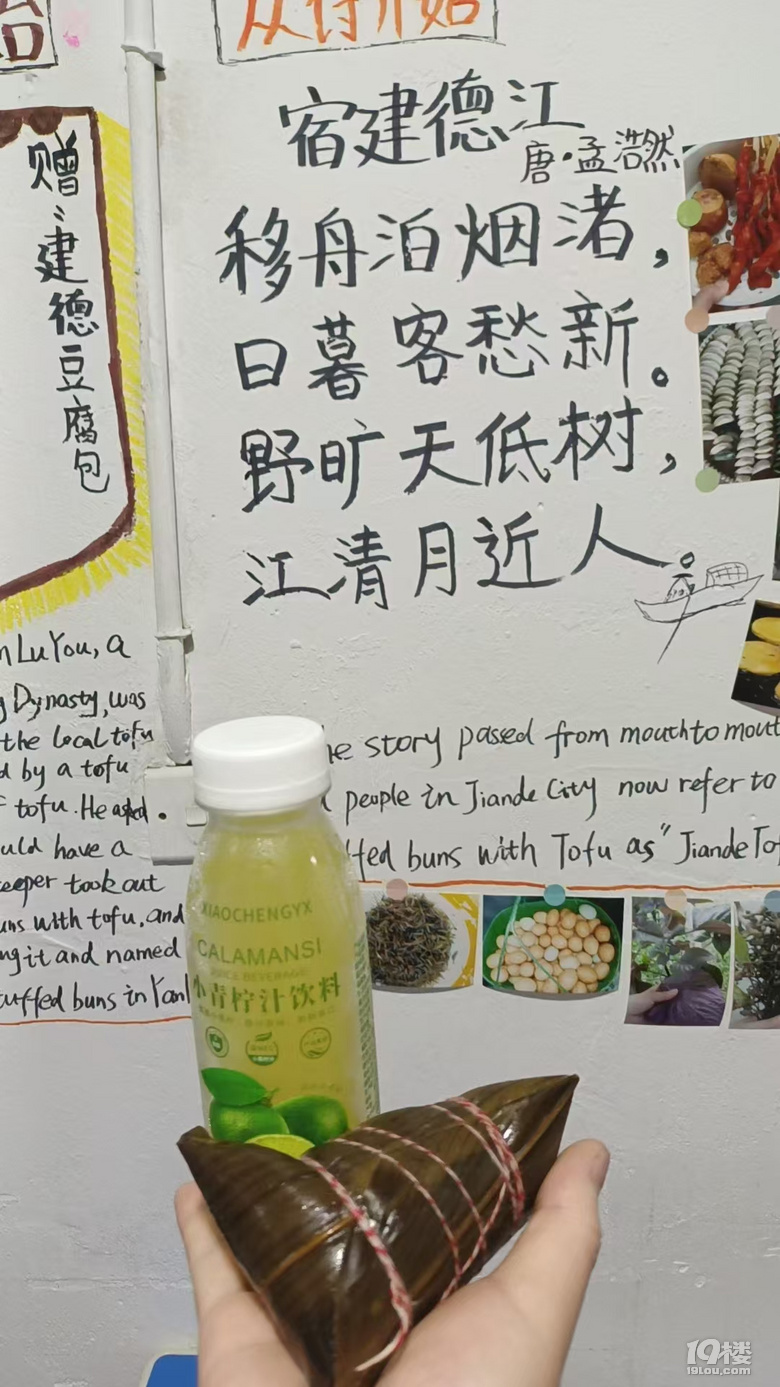 从待开始
宿建德江
唐·孟浩然
移舟泊烟渚，
日暮客愁新。
野旷天低树，
江清月近人。
赠、建德豆腐包
Lu You, a
Dynasty, was
the local tofu
by a tofu
tofu. He asked
have a
took out
with tofu, and
it and named
buns in Yan
story pased from mouth to mout
people in Jiande City now refer to
buns with Tofu as "Jiande To
XIAOCHENGYX
CALAMANSI
JUICE BEVERAGE
小青柠汁饮料
19楼
19lou.com